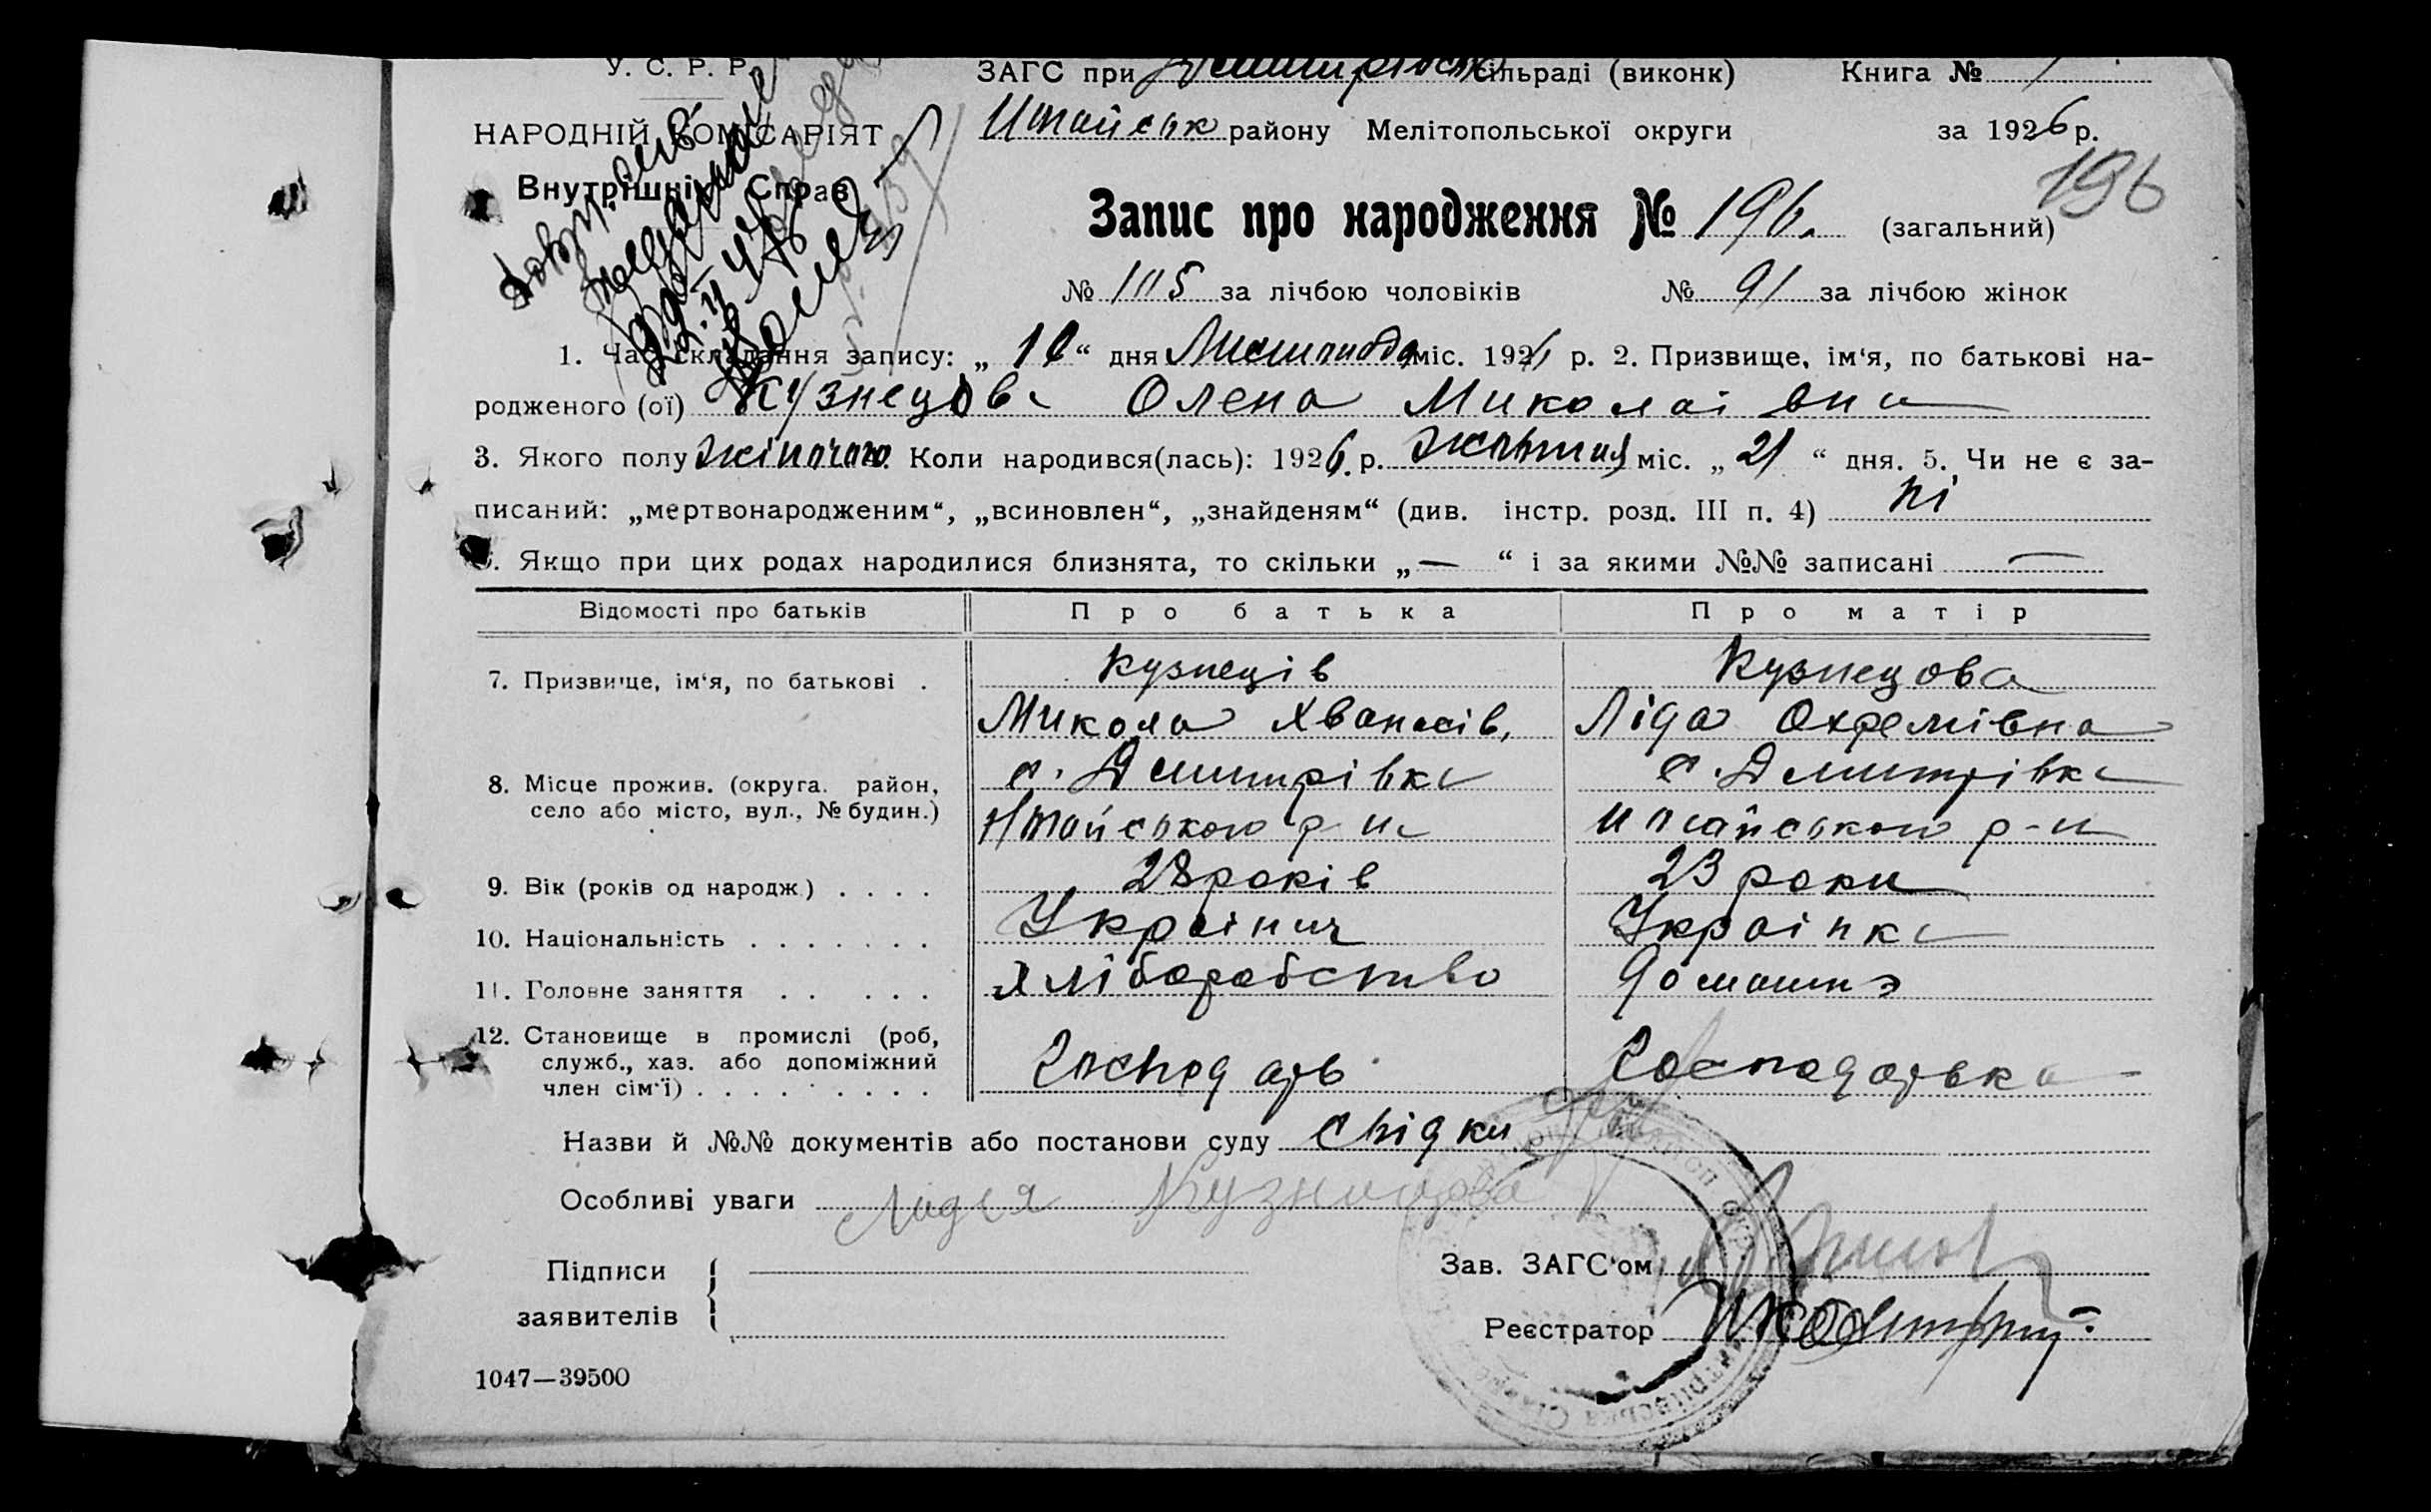 У. С. Р. Р.
ЗАГС при сільраді (виконк) Книга №
НАРОДНІЙ КОМІСАРІЯТ
Внутрішніх Справ
району Мелітопольської округи за 1926 р.
196
Запис про народження № 196. (загальний)
№ 105 за лічбою чоловіків № 91 за лічбою жінок
1. Час складання запису: „ “ дня Листопада міс. 1926 р. 2. Призвище, ім‘я, по батькові на-
родженого (ої) Кузнецова Олена Миколаівна
3. Якого полу жіночого. Коли народився(лась): 1926. р. жовтня міс. „ 21 “ дня. 5. Чи не є за-
писаний: „мертвонародженим“, „всиновлен“, „знайденям“ (див. інстр. розд. III п. 4) ні
6. Якщо при цих родах народилися близнята, то скільки „ — “ і за якими №№ записані —
Відомості про батьків Про батька Про матір
7. Призвище, ім‘я, по батькові . Кузнеців Кузнецова
Микола Хванасів. Ліда Охремівна
8. Місце прожив. (округа. район, с. Дмитрівка с. Дмитрівка
село або місто, вул., № будин.) р-на р-н
9. Вік (років од народж.) . . . . 28 років 23 роки
10. Національність . . . . . . . Украінец Украінка
11. Головне заняття . . . . . Хліборобство Домашнэ
12. Становище в промислі (роб,
служб., хаз. або допоміжний Господарь Господарька
член сім‘ї) . . . . . . . .
Назви й №№ документів або постанови суду Свідки
Особливі уваги Лидия Кузнецова
Підписи
заявителів
Зав. ЗАГС‘ом
Реєстратор
1047—39500